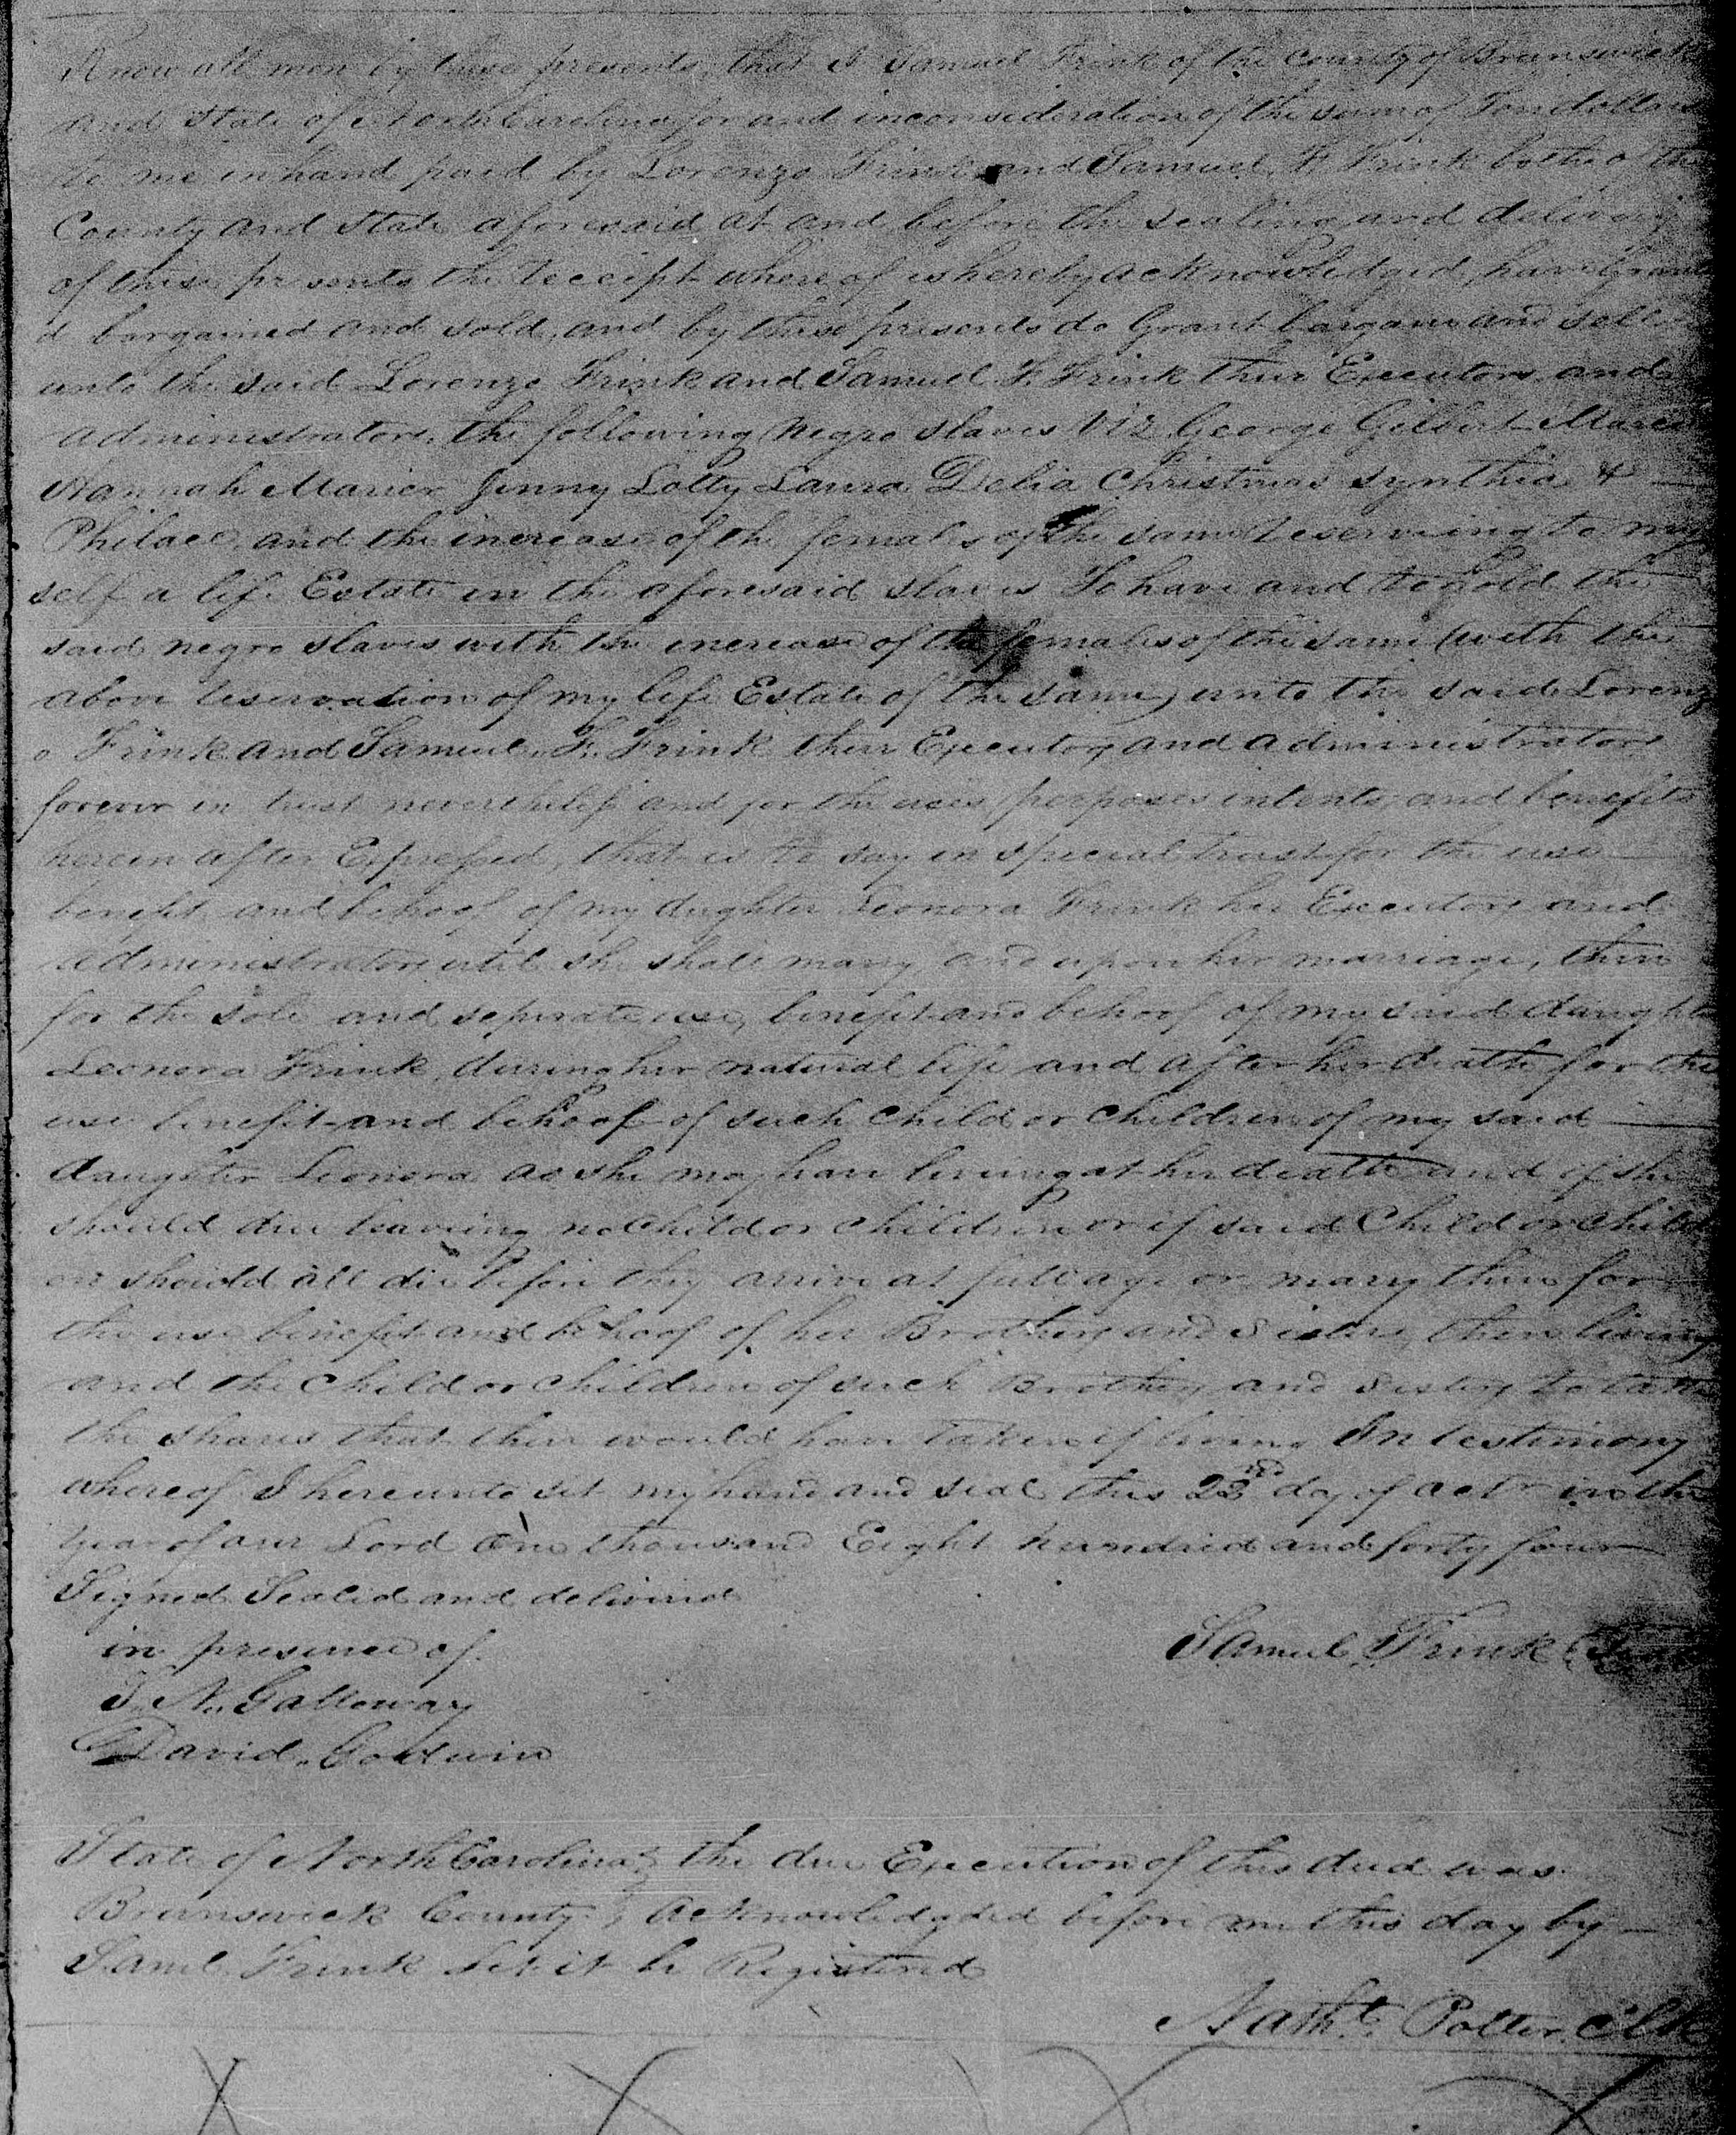 Know all men by these presents, that I Samuel Frink of the County of Brunswick
and State of North Carolina for and inconsideration of the sum of Ten dollars
to me in hand paid by Lorenzo Frink and Samuel F. Frink both of the
County and State aforesaid at and before the sealing and delivery
of these presents the receipt where of is hereby acknowledged, have Grant
d bargained and sold, and by these presents do Grant bargain and sell
unto the said Lorenzo Frink and Samuel F. Frink their Executors and
administrators, the following Negro slaves Viz George Gilbert
Hannah Marier Jinny Lotty Laura Delia Christmas Synthia &
and the increase of the females of the same reserving to my
self a life Estate in the aforesaid slaves To have and to hold the
said negro slaves with the increase of the females of the same (with the
above reservation of my life Estate of the same) unto the said Lorenz
o Frink and Samuel F. Frink their Executors and administrators
forever in trust nevertheless and for the uses perposes intents and benefits
herein after Expressed, that is to say in special trust for the use
benefit and behoof of my dughter Leonora Frink her Executors and
administrators until she shall marry and upon her marriage, then
for the sole and seperate use, benefit and behoof of my said daughter
Leonora Frink, during her natural life and after her death for the
use benefit and behoof of such child or children of my said
daughter Leonora as she may have living at her death and if she
should die leaving no child or children or if said Child or Child
en should all die before they arrive at full age or marry then for
the use benefit and behoof of her Brothers and Sisters, then living
and the child or children of such Brothers and Sisters to take
the shares that their would have taken if living In testimony
whereof I hereunto set my hand and seal this 22nd day of Octr in the
year of our Lord One thousand Eight hundred and forty four
Signed Sealed and delivered
in presence of
Samuel Frink (Seal)
J. N. Galloway
David Godwin
State of North Carolina } the due Execution of this deed was
Brunswick County } acknowledged before me this day by
Saml. Frink let it be Registered
Nathl. Potter Clk